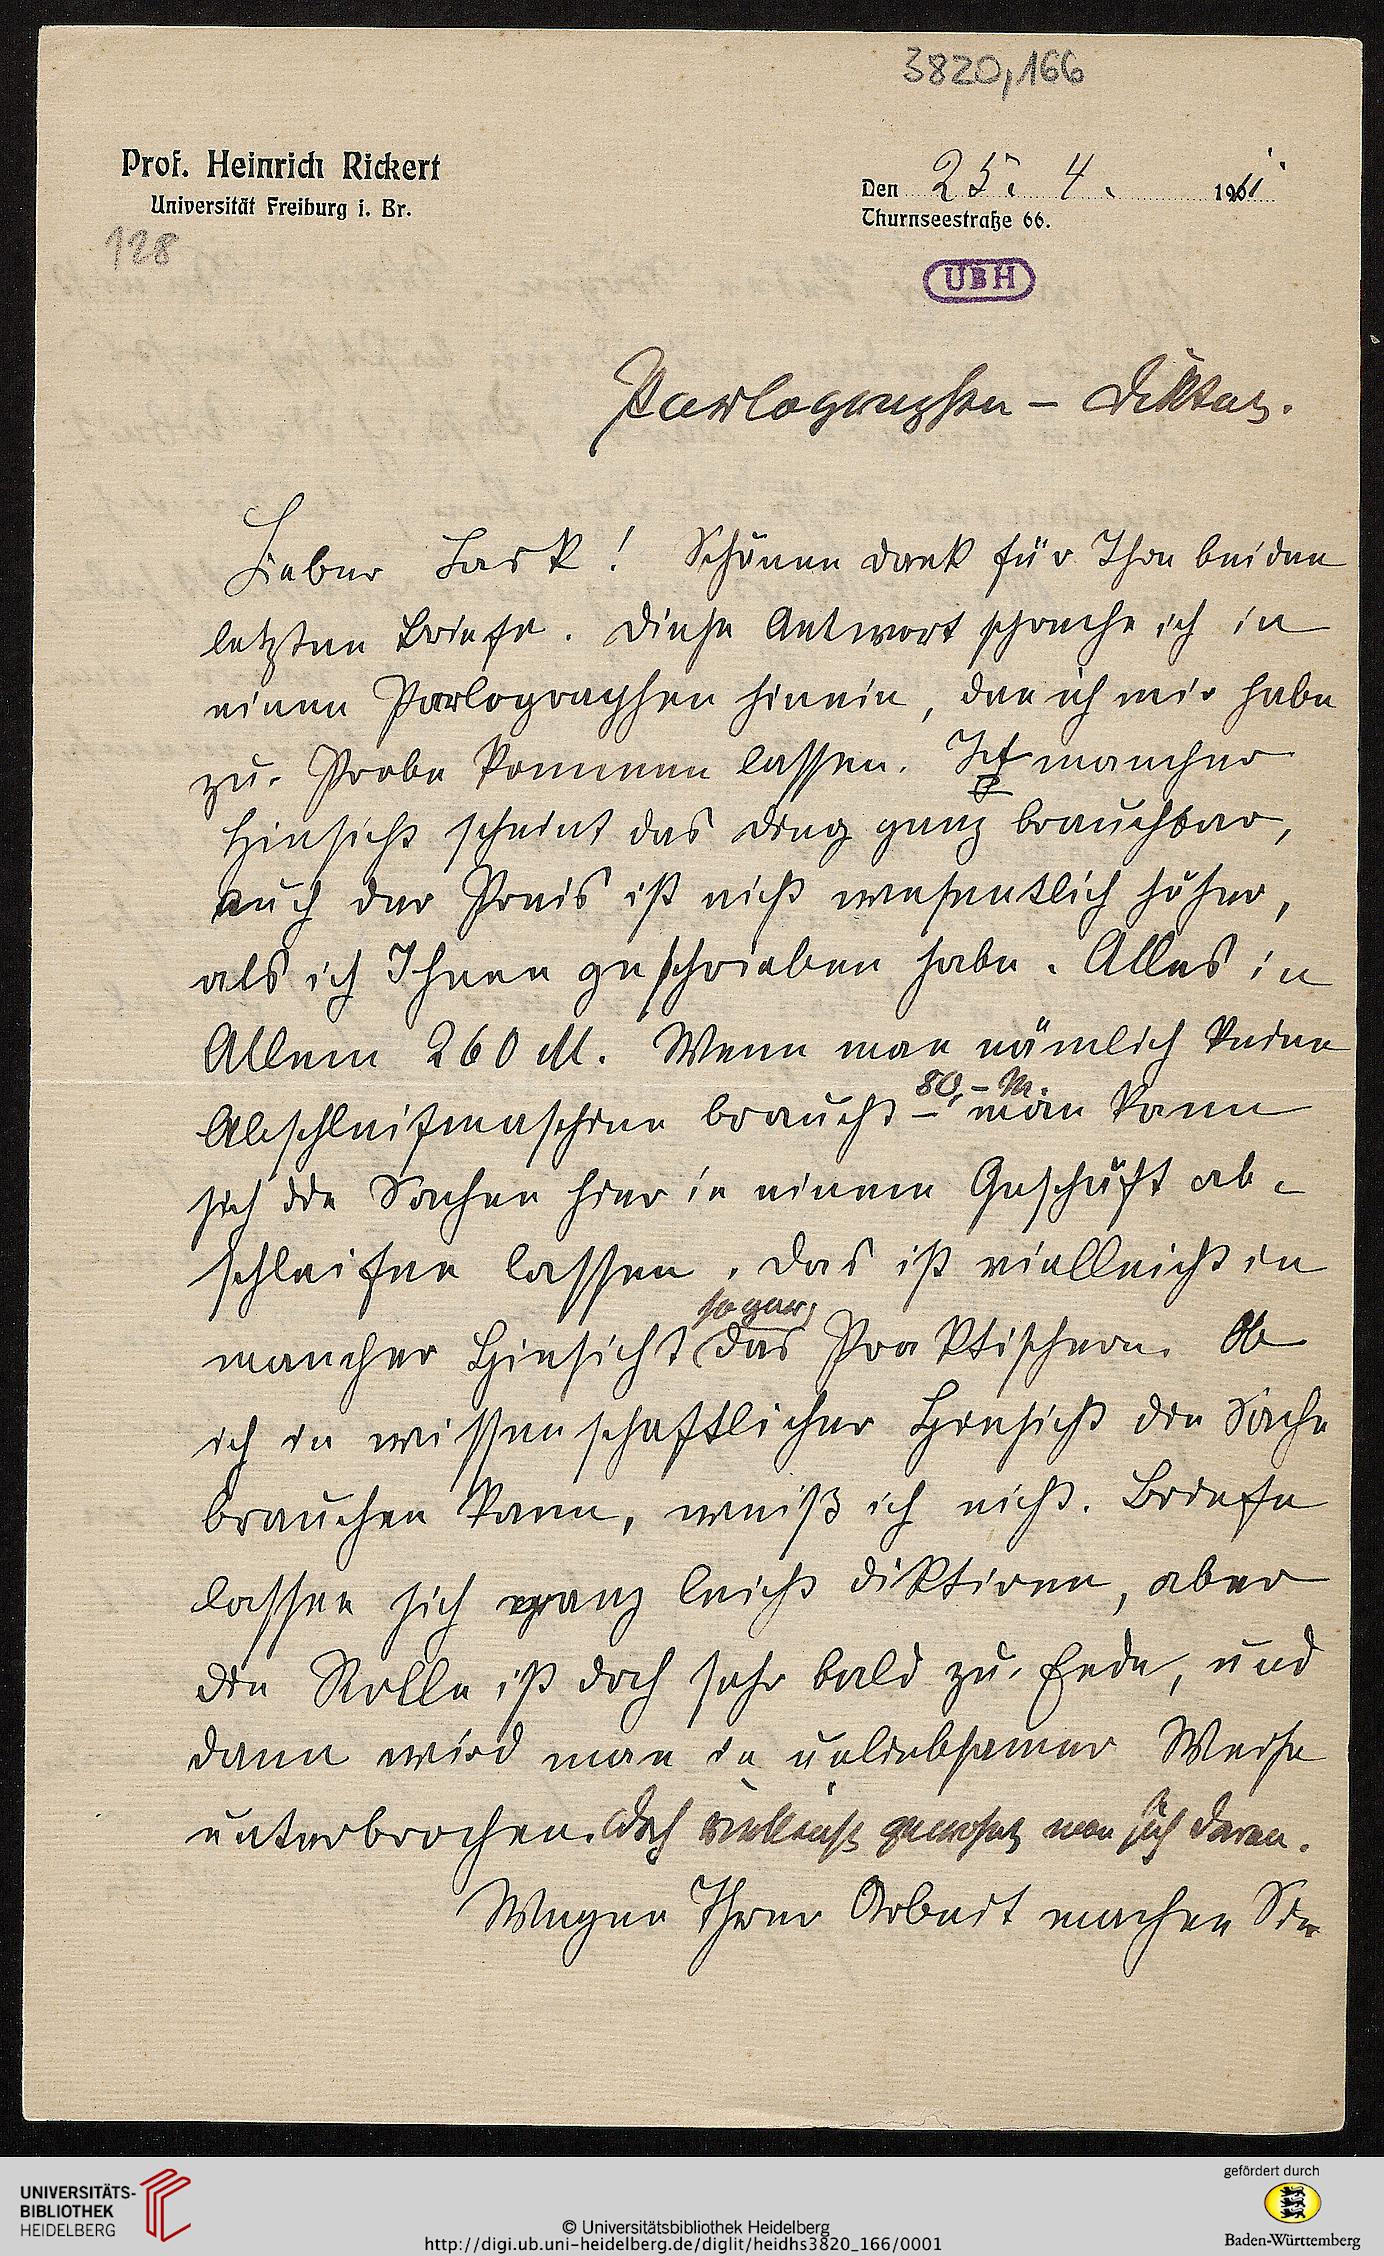 3820,166
Prof. Heinrich Rickert
Universität Freiburg i. Br.
128
Den 25. 4. 1911
Thurnseestraße 66.
UBH
Parlographen - Diktat.
Lieber Lask! Schönen Dank für Ihre beiden
letzten Briefe. Diese Antwort spreche ich in
einen Parlographen hinein, den ich mir habe
zur Probe kommen lassen. In mancher
Hinsicht scheint das Ding ganz brauchbar,
auch der Preis ist nicht wesentlich höher,
als ich Ihnen geschrieben habe. Alles in
Allem 260 M. Wenn man nämlich keine
80,- M.
Abschleifmaschine braucht - man kann
sich die Sachen hier in einem Geschäft ab-
schleifen lassen. Das ist vielleicht in
sogar
mancher Hinsicht das Praktischere. Ob
ich in wissenschaftlicher Hinsicht die Sache
brauchen kann, weiß ich nicht. Briefe
lassen sich ganz leicht diktiren, aber
die Rolle ist doch sehr bald zu Ende, und
dann wird man in unliebsamer Weise
unterbrochen. Doch vielleicht gewöhnt man sich daran.
Wegen Ihrer Arbeit machen Sie
UNIVERSITÄTS-
BIBLIOTHEK
HEIDELBERG
© Universitätsbibliothek Heidelberg
http://digi.ub.uni-heidelberg.de/diglit/heidhs3820_166/0001
gefördert durch
Baden-Württemberg